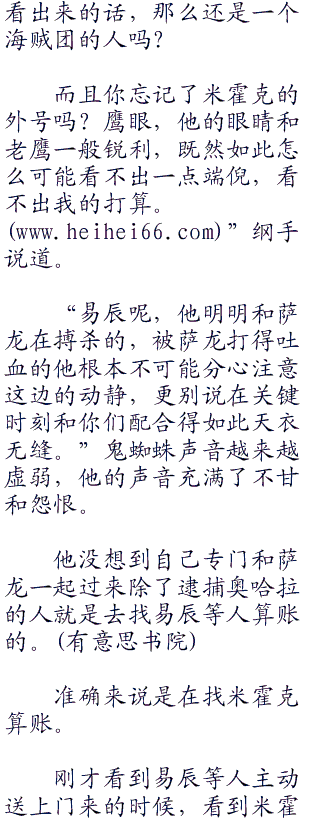 看出来的话，那么还是一个
海贼团的人吗？
而且你忘记了米霍克的
外号吗？鹰眼，他的眼睛和
老鹰一般锐利，既然如此怎
么可能看不出一点端倪，看
不出我的打算。
(www.heihei66.com)”纲手
说道。
“易辰呢，他明明和萨
龙在搏杀的，被萨龙打得吐
血的他根本不可能分心注意
这边的动静，更别说在关键
时刻和你们配合得如此天衣
无缝。”鬼蜘蛛声音越来越
虚弱，他的声音充满了不甘
和怨恨。
他没想到自己专门和萨
龙一起过来除了逮捕奥哈拉
的人就是去找易辰等人算账
的。(有意思书院)
准确来说是在找米霍克
算账。
刚才看到易辰等人主动
送上门来的时候，看到米霍